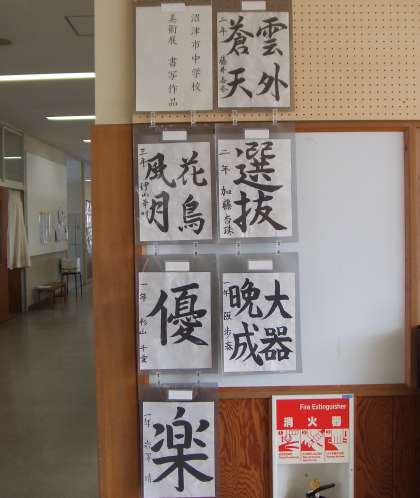 沼津市中学校
美術展 書写作品
雲外
蒼天
二年
花鳥
風月
三年
選抜
二年 加藤
大器
晩成
一年
優
一年 杉山
楽
一年
Fire Extinguisher
消火器